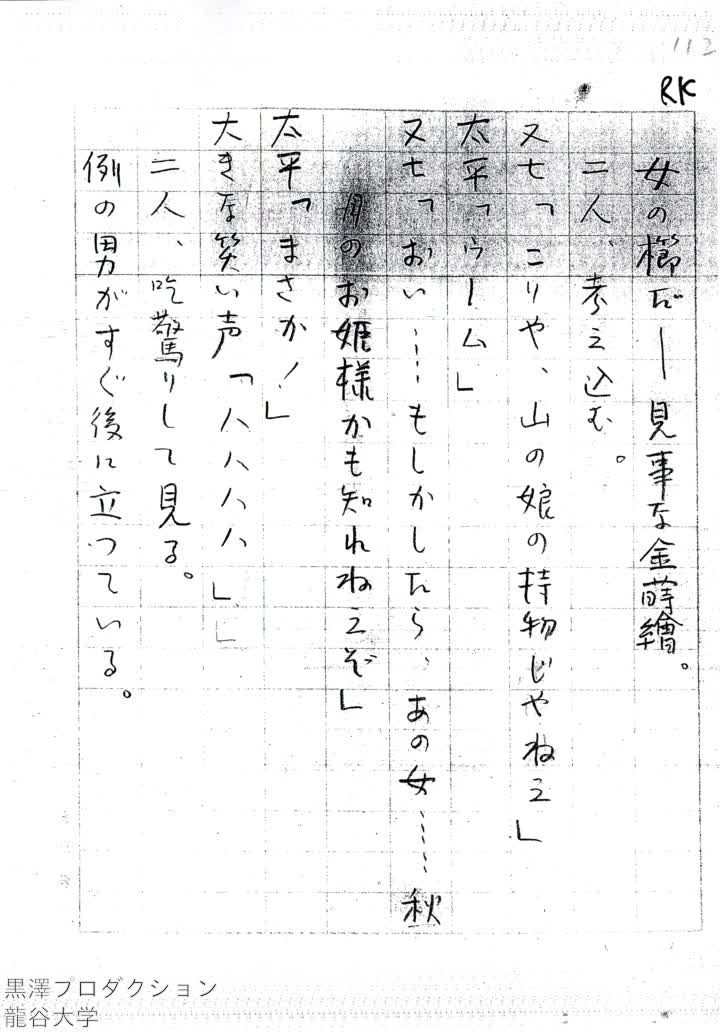 112
RK
女の櫛だ――見事な金蒔繪。
二人、考え込む。
又七「こりや、山の娘の持物じやねえ」
太平「ウーム」
又七「おい……もしかしたら、あの女……秋
月のお姫様かも知れねえぞ」
太平「まさか！」
大きな笑い声「ハハハハ」
二人、吃驚りして見る。
例の男がすぐ後に立つている。
黒澤プロダクション
龍谷大学